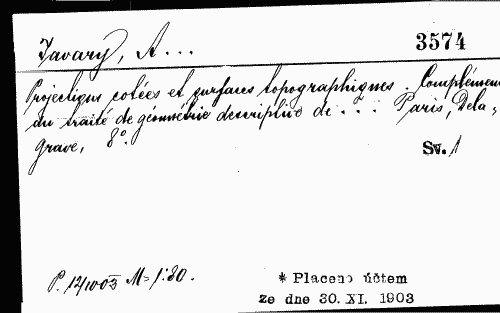 Javary, A...
3574
Projections cotées et surfaces topographiques. Complément
du traité de géométrie descriptive de... Paris, Dela-
grave, 8°.
Sv. 1
P. 12/10 03 M = 1:80.
* Placeno účtem
ze dne 30. XI. 1903